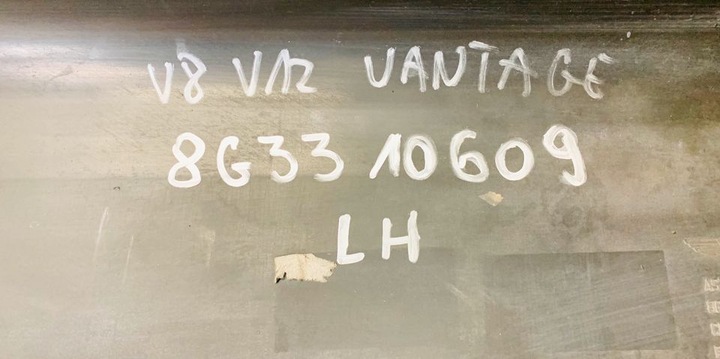 V8 V12 VANTAGE
8G33 10609
LH